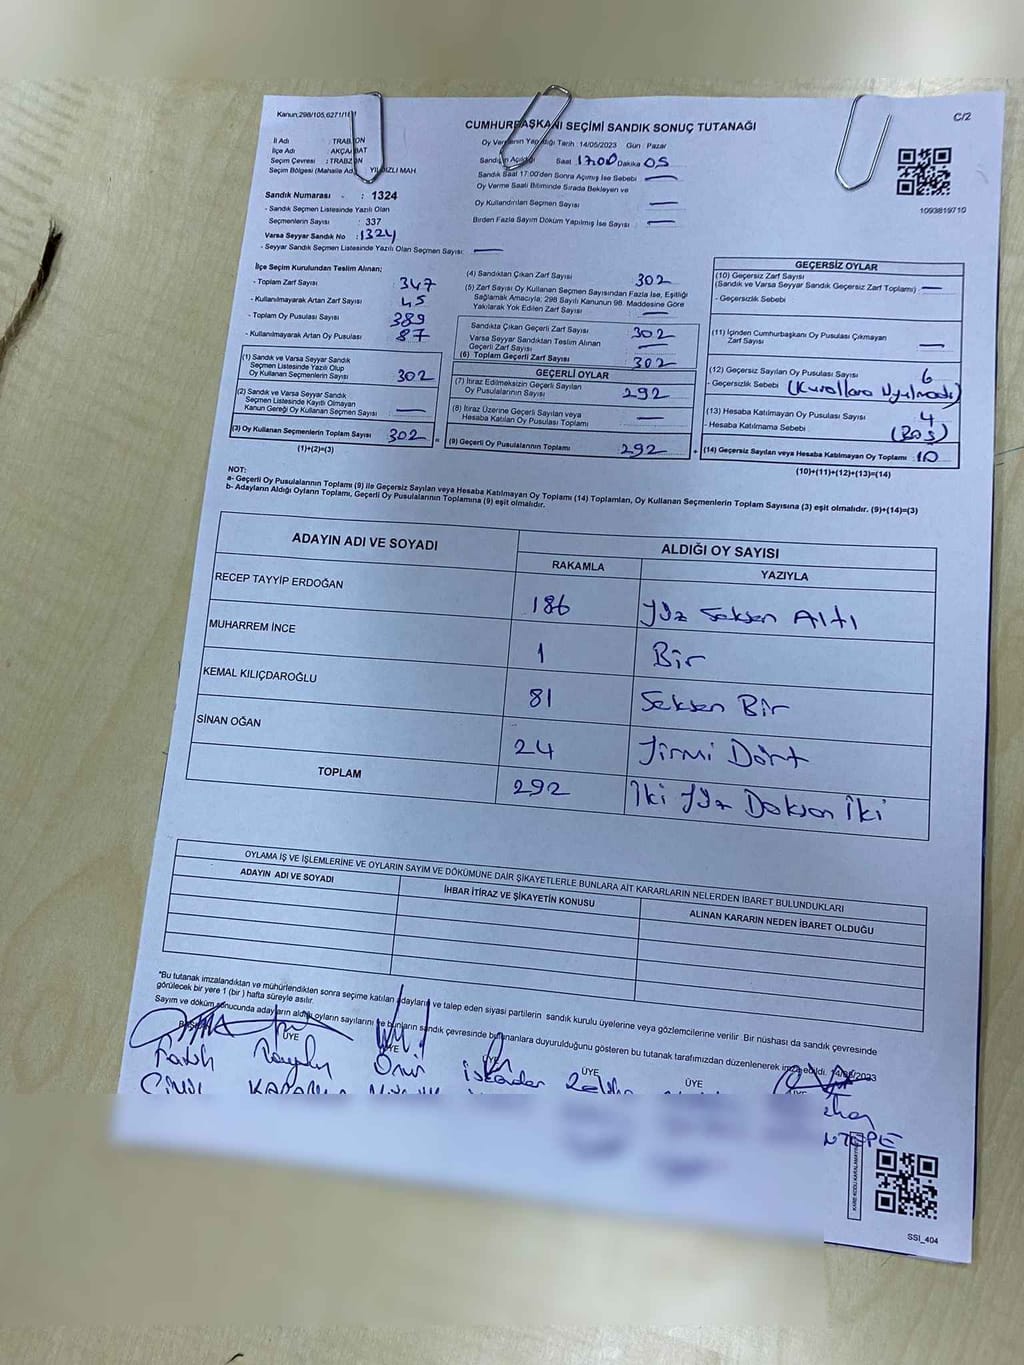 Kanun,298/105,6271/18
C/2
CUMHURBAŞKANI SEÇİMİ SANDIK SONUÇ TUTANAĞI
İl Adı : TRABZON
İlçe Adı : AKÇAABAT
Seçim Çevresi : TRABZON
Seçim Bölgesi (Mahalle Adı) YILDIZLI MAH
Oy Vermenin Yapıldığı Tarih :14/05/2023 Gün : Pazar
Sandığın Açıldığı Saat 17:00 Dakika 05
Sandık Saat 17:00'den Sonra Açılmış İse Sebebi —
Oy Verme Saati Bitiminde Sırada Bekleyen ve
Oy Kullandırılan Seçmen Sayısı —
Birden Fazla Sayım Döküm Yapılmış İse Sayısı —
1093819710
Sandık Numarası : 1324
- Sandık Seçmen Listesinde Yazılı Olan
Seçmenlerin Sayısı : 337
Varsa Seyyar Sandık No : 1324
- Seyyar Sandık Seçmen Listesinde Yazılı Olan Seçmen Sayısı: —
İlçe Seçim Kurulundan Teslim Alınan;
- Toplam Zarf Sayısı : 347
- Kullanılmayarak Artan Zarf Sayısı : 45
- Toplam Oy Pusulası Sayısı : 389
- Kullanılmayarak Artan Oy Pusulası : 87
(1) Sandık ve Varsa Seyyar Sandık
Seçmen Listesinde Yazılı Olup
Oy Kullanan Seçmenlerin Sayısı : 302
(2) Sandık ve Varsa Seyyar Sandık
Seçmen Listesinde Kayıtlı Olmayan
Kanun Gereği Oy Kullanan Seçmen Sayısı : —
(3) Oy Kullanan Seçmenlerin Toplam Sayısı : 302 =
(1)+(2)=(3)
(4) Sandıktan Çıkan Zarf Sayısı 302
(5) Zarf Sayısı Oy Kullanan Seçmen Sayısından Fazla İse, Eşitliği
Sağlamak Amacıyla; 298 Sayılı Kanunun 98. Maddesine Göre
Yakılarak Yok Edilen Zarf Sayısı : —
Sandıkta Çıkan Geçerli Zarf Sayısı : 302
Varsa Seyyar Sandıktan Teslim Alınan
Geçerli Zarf Sayısı : —
(6) Toplam Geçerli Zarf Sayısı : 302
GEÇERLİ OYLAR
(7) İtiraz Edilmeksizin Geçerli Sayılan
Oy Pusulalarının Sayısı : 292
(8) İtiraz Üzerine Geçerli Sayılan veya
Hesaba Katılan Oy Pusulası Toplamı : —
(9) Geçerli Oy Pusulalarının Toplamı : 292 +
GEÇERSİZ OYLAR
(10) Geçersiz Zarf Sayısı
(Sandık ve Varsa Seyyar Sandık Geçersiz Zarf Toplamı) : —
- Geçersizlik Sebebi
(11) İçinden Cumhurbaşkanı Oy Pusulası Çıkmayan
Zarf Sayısı : —
(12) Geçersiz Sayılan Oy Pusulası Sayısı : 6
- Geçersizlik Sebebi (Kurallara Uyulmadı)
(13) Hesaba Katılmayan Oy Pusulası Sayısı : 4
- Hesaba Katılmama Sebebi : (Boş)
(14) Geçersiz Sayılan veya Hesaba Katılmayan Oy Toplamı : 10
(10)+(11)+(12)+(13)=(14)
NOT:
a- Geçerli Oy Pusulalarının Toplamı (9) ile Geçersiz Sayılan veya Hesaba Katılmayan Oy Toplamı (14) Toplamları, Oy Kullanan Seçmenlerin Toplam Sayısına (3) eşit olmalıdır. (9)+(14)=(3)
b- Adayların Aldığı Oyların Toplamı, Geçerli Oy Pusulalarının Toplamına (9) eşit olmalıdır.
ADAYIN ADI VE SOYADI
ALDIĞI OY SAYISI
RAKAMLA YAZIYLA
RECEP TAYYİP ERDOĞAN 186 Yüz Seksen Altı
MUHARREM İNCE 1 Bir
KEMAL KILIÇDAROĞLU 81 Seksen Bir
SİNAN OĞAN 24 Yirmi Dört
TOPLAM 292 İki Yüz Doksan İki
OYLAMA İŞ VE İŞLEMLERİNE VE OYLARIN SAYIM VE DÖKÜMÜNE DAİR ŞİKAYETLERLE BUNLARA AİT KARARLARIN NELERDEN İBARET BULUNDUKLARI
ADAYIN ADI VE SOYADI İHBAR İTİRAZ VE ŞİKAYETİN KONUSU ALINAN KARARIN NEDEN İBARET OLDUĞU
*Bu tutanak imzalandıktan ve mühürlendikten sonra seçime katılan adayların ve talep eden siyasi partilerin sandık kurulu üyelerine veya gözlemcilerine verilir. Bir nüshası da sandık çevresinde
görülecek bir yere 1 (bir) hafta süreyle asılır.
Sayım ve döküm sonucunda adayların aldığı oyların sayılarını ve bunların sandık çevresinde bulunanlara duyurulduğunu gösteren bu tutanak tarafımızdan düzenlenerek imza edildi. 14/05/2023
ÜYE ÜYE ÜYE ÜYE ÜYE
Onur İskender
SSI_404